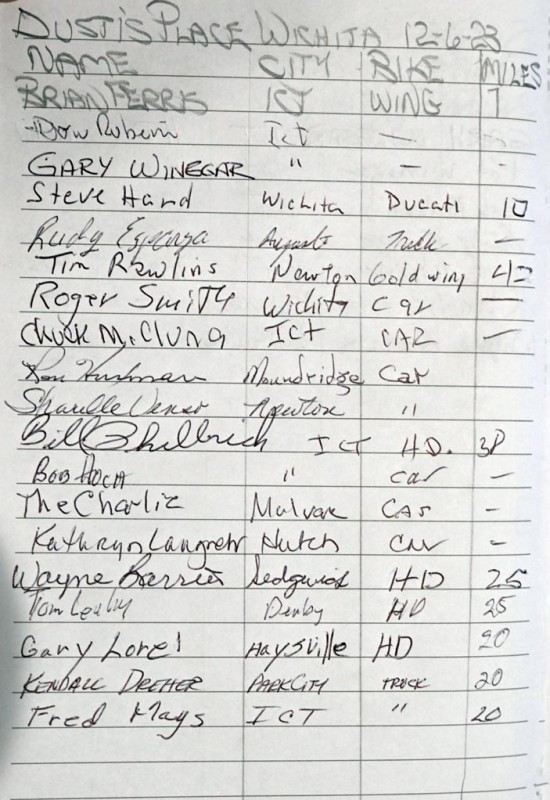 DUSTIS PLACE WICHITA 12-6-23
NAME CITY BIKE MILES
BRIAN FERRIS ICT WING 7
Don Ict —
GARY WINEGAR " -
Steve Hand Wichita Ducati 10
Rudy Esparza Augusta Truck —
Tim Rawlins Newton Goldwing 42
Roger Smith Wichita Car —
Chuck McClung ICT CAR —
Moundridge Car
Newton "
Bill ICT HD.
Bob Hoch " car -
The Charlie Mulvane CAr -
Kathryn Hutch Car -
Wayne Sedgwick HD 25
Tom Derby HD 25
Gary Lorel Haysville HD 20
KENDALL DREHER PARK CITY TRUCK 20
Fred Mays ICT " 20